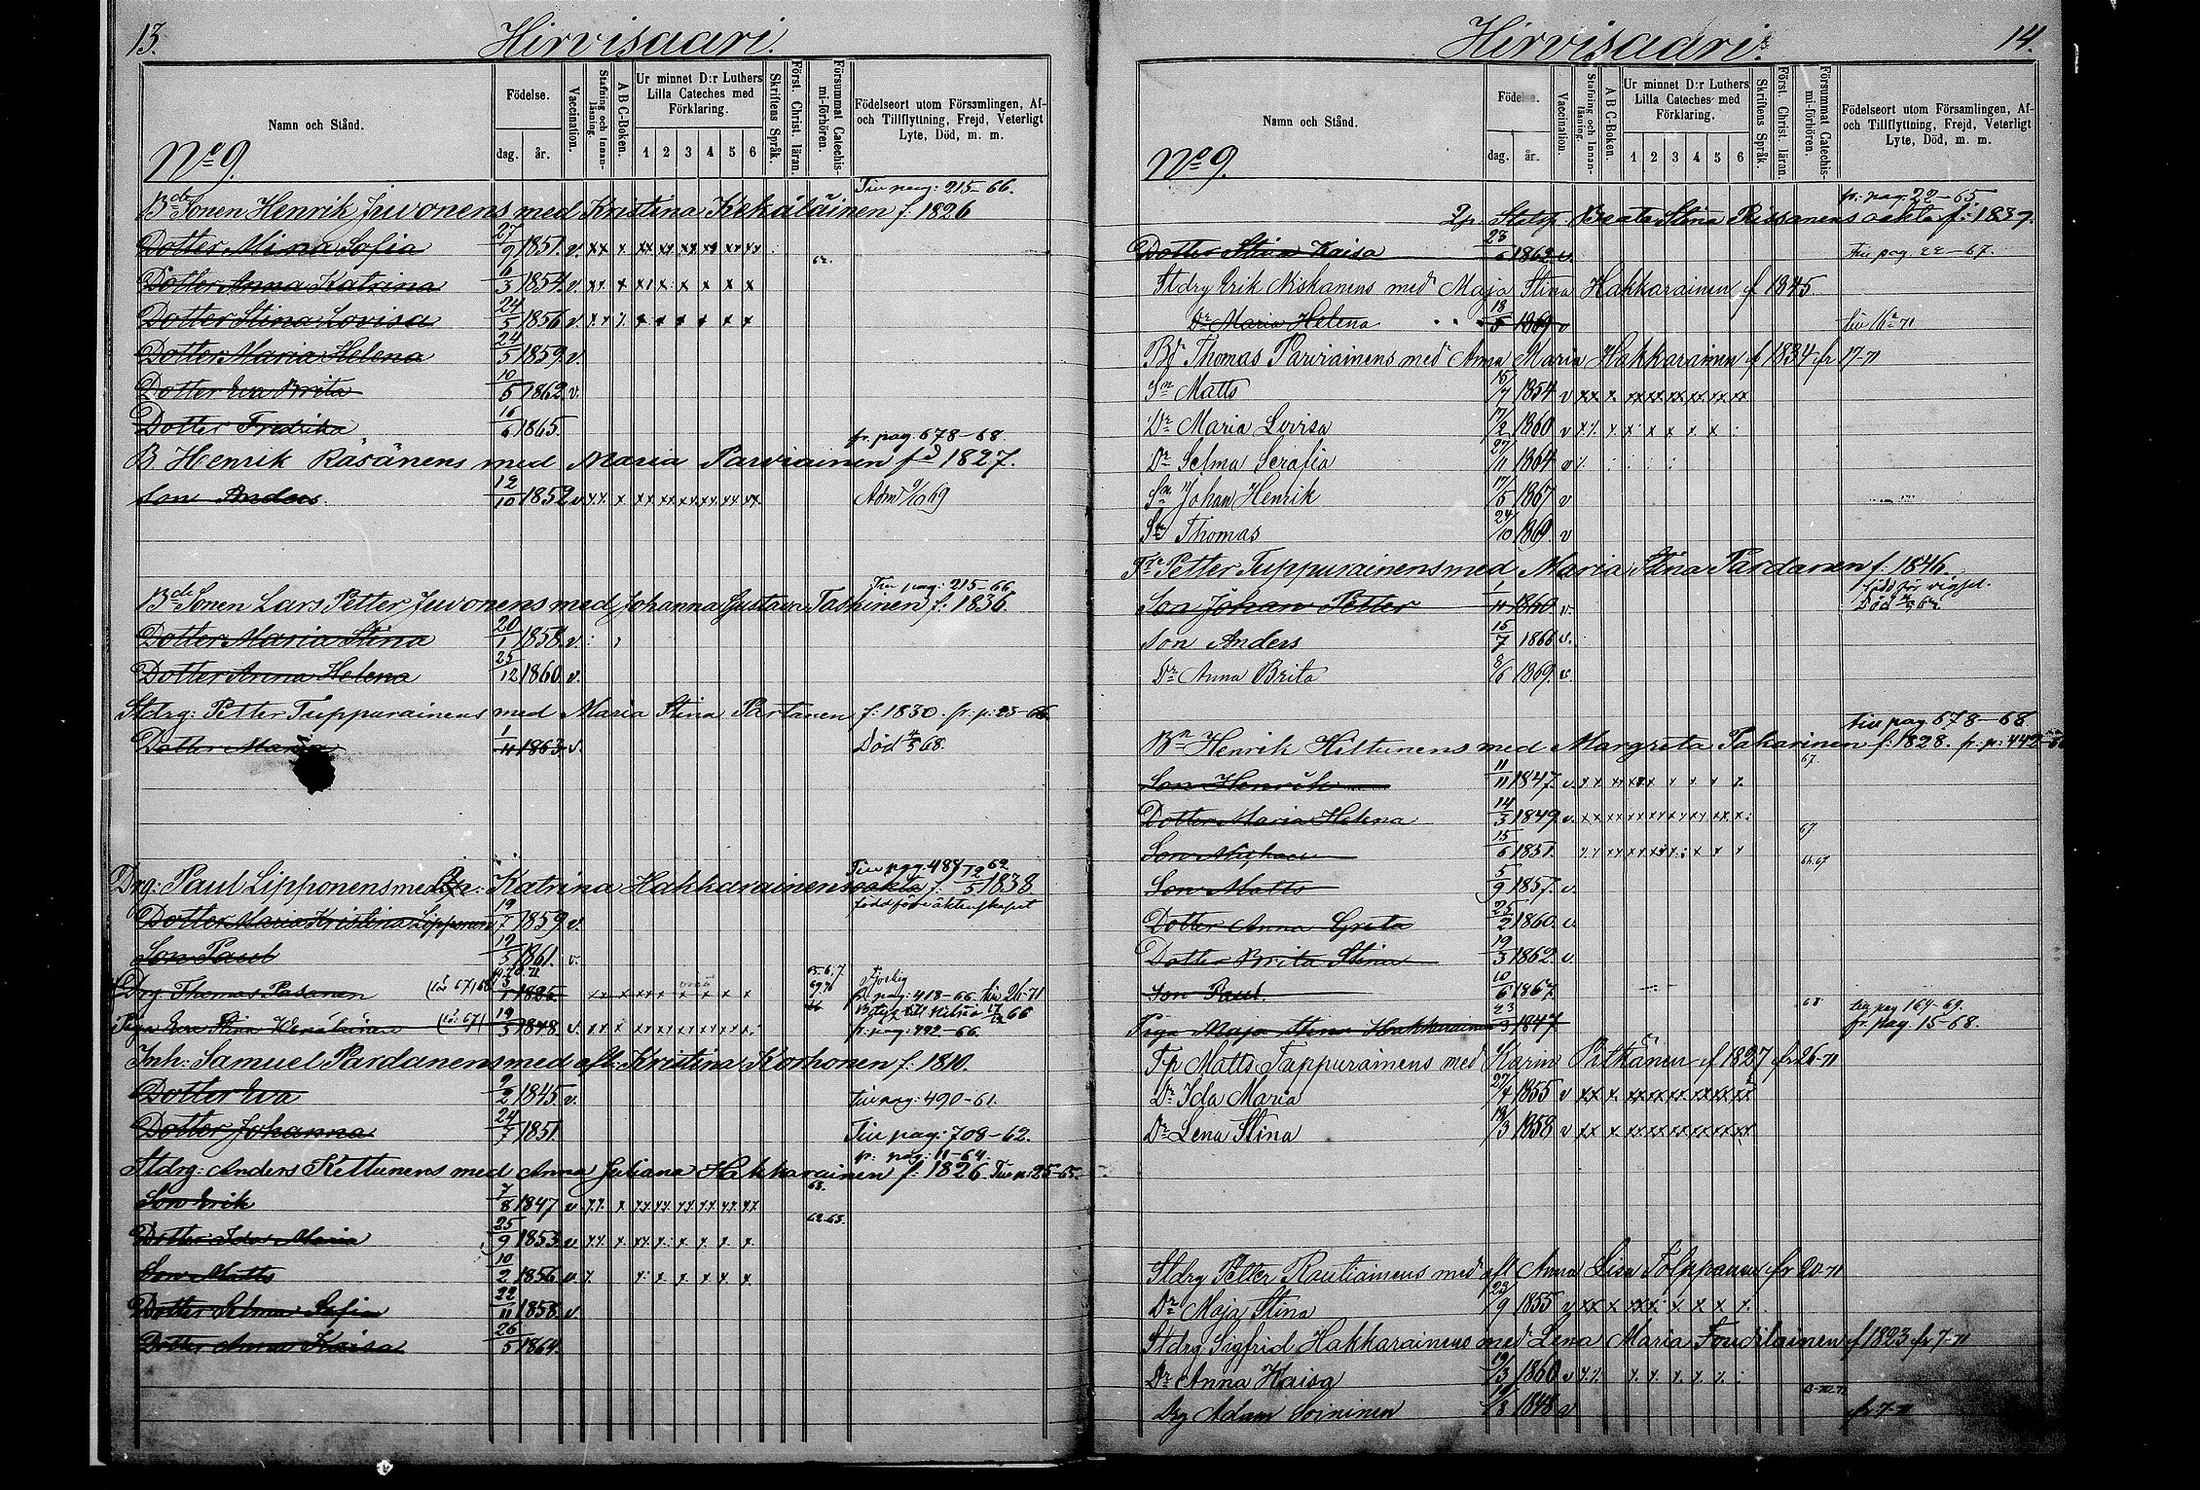 13.
Hirvisaari.
Namn och Stånd.
Födelse.
dag. år.
Vaccination.
Stafning och Innanläsning.
A B C-Boken.
Ur minnet D:r Luthers Lilla Cateches med Förklaring.
1 2 3 4 5 6
Skriftens Språk.
Först. Christ. läran.
Försummat Catechismi-förhören.
Födelseort utom Församlingen, Af- och Tillflyttning, Frejd, Veterligt Lyte, Död, m. m.
No 9.
Tiu pag: 215-66.
Bde Sonen Henrik Juvonens med Kristina Kekäläinen f. 1826
Dotter Mina Sofia 27/9 1851. v.
62.
Dotter Anna Katrina 6/3 1854. v.
Dotter Stina Lovisa 24/5 1856 v.
Dotter Maria Helena 24/5 1859. v.
Dotter Eva Brita 10/5 1862. v.
Dotter Fredrika 16/6 1865.
fr. pag. 678-68.
B. Henrik Räsänens med Maria Parviainen fd 1827.
Son Anders. 12/10 1852 v
Tiu pag: 215-66.
Bde Sonen Lars Petter Juvonens med Johanna Gustava Toskinen f. 1836.
Dotter Maria Stina 20/1 1858. v.
Dotter Anna Helena 25/12 1860. v.
Stdrg: Petter Tuppurainens med Maria Stina Partanen f: 1830. fr: p: 23-66.
Dotter Maria 1/11 1863. v. Död 68.
Drg: Paul Lipponens med Katrina Hakkarainens äkta f. 1838
född före äktenskapet
Dotter Maria Kristina Lipponen 19/7 1859 v.
Son Paul 19/5 1861. v.
Drg Thomas Pasanen
fr. pag: 418-66. tiu 26-71
Piga Eva Stina 19/5 1848. v.
fr. pag: 492-66.
Inh: Samuel Pardanens med afl: Kristina Korhonen f: 1810.
Dotter Eva 9/2 1845 v. tiu pag: 490-61.
Dotter Johanna 24/7 1851 Tiu pag: 708-62.
fr: pag: 11-64.
Stdrg: Anders Kettunens med Anna Juliana Hakkarainen f. 1826. Tiu p: 25-65.
68.
Son Erik 7/8 1847 v
62-63.
Dotter Ida Maria 25/9 1853. v
Son Matts 10/2 1856 v.
Dotter Selma Sofia 22/11 1858. v.
Dotter Anna Kaisa 26/5 1864.
14.
Hirvisaari.
Namn och Stånd.
Födelse.
dag. år.
Vaccination.
Stafning och Innanläsning.
A B C-Boken.
Ur minnet D:r Luthers Lilla Cateches med Förklaring.
1 2 3 4 5 6
Skriftens Språk.
Först. Christ. läran.
Försummat Catechismi-förhören.
Födelseort utom Församlingen, Af- och Tillflyttning, Frejd, Veterligt Lyte, Död, m. m.
No 9.
fr. pag. 22-65.
Beata Stina Rissanens oäkta f: 1837.
Dotter Stina Kaisa 23/6 1862 v. tiu pag. 22-67.
Stdrg Erik Niskanens med Maja Stina Hakkarainen f 1845
Dr Maria Helena 18/5 1869 v
Bd Thomas Parviainens med Anna Maria Hakkarainen f 1834 fr 17-71
Sn Matts 15/7 1854 v
Dr Maria Lovisa 17/2 1860 v
Dr Selma Serafia 27/11 1864 v
Sn Johan Henrik 17/6 1867 v
Sn Thomas 24/10 1869 v
Petter Tuppurainens med Maria Stina Pardanen f. 1846.
Son Johan Petter 1/11 1860 v.
född för vigsel.
Son Anders 15/7 1866 v.
Dr Anna Brita 8/6 1869. v.
tiu pag 678-68
Bn Henrik Hiltunens med Margreta Pakarinen f. 1828. fr. p: 442
67.
Son Henrik 11/11 1847. v.
Dotter Maria Helena 14/3 1849. v.
67
Son Michael 15/6 1851.
Son Matts 5/9 1857. v.
Dotter Anna Greta 25/2 1860. v.
Dotter Brita Stina 19/3 1862 v.
Son Paul. 10/6 1867.
68 tiu pag 164-69.
Piga Maja Stina Hakkarainen 23/3 1847 fr. pag 15-68.
Matts Tappurainens med Karin Pitkänen f 1827 fr 26-71
Dr Ida Maria 27/7 1855 v
Dr Lena Stina 1858 v
Stdrg Petter Rautiainens med afl Anna Lisa Tolppanen fr 20-71
Dr Maja Stina 23/9 1855 v
Stdrg Sigfrid Hakkarainens med Lena Maria f 1823 fr 7-71
Dr Anna Kaisa 19/3 1860 v
Drg Adam Soininen 1848 v fr 7-71